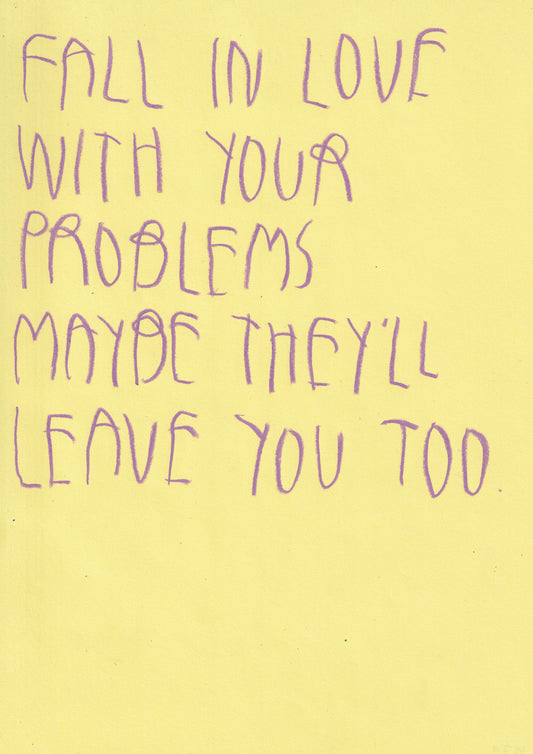 FALL IN LOVE
WITH YOUR
PROBLEMS
MAYBE THEY'LL
LEAVE YOU TOO.